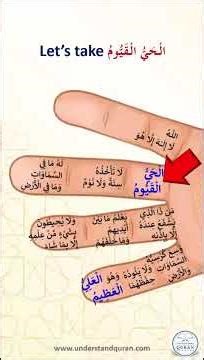 Let's take الْحَيُّ الْقَيُّومُ
اللهُ
لَا إِلٰهَ إِلَّا هُوَ
الْحَيُّ
الْقَيُّومُ
لَا تَأْخُذُهُ
سِنَةٌ وَلَا نَوْمٌ
لَهُ مَا فِي
السَّمَاوَاتِ
وَمَا فِي الْأَرْضِ
مَن ذَا الَّذِي
يَشْفَعُ عِندَهُ
إِلَّا بِإِذْنِهِ
يَعْلَمُ مَا بَيْنَ
أَيْدِيهِمْ
وَمَا خَلْفَهُمْ
وَلَا يُحِيطُونَ
بِشَيْءٍ مِّنْ عِلْمِهِ
إِلَّا بِمَا شَاءَ
وَسِعَ كُرْسِيُّهُ
السَّمَاوَاتِ
وَالْأَرْضَ
وَلَا يَئُودُهُ
حِفْظُهُمَا
وَهُوَ الْعَلِيُّ
الْعَظِيمُ
www.understandquran.com